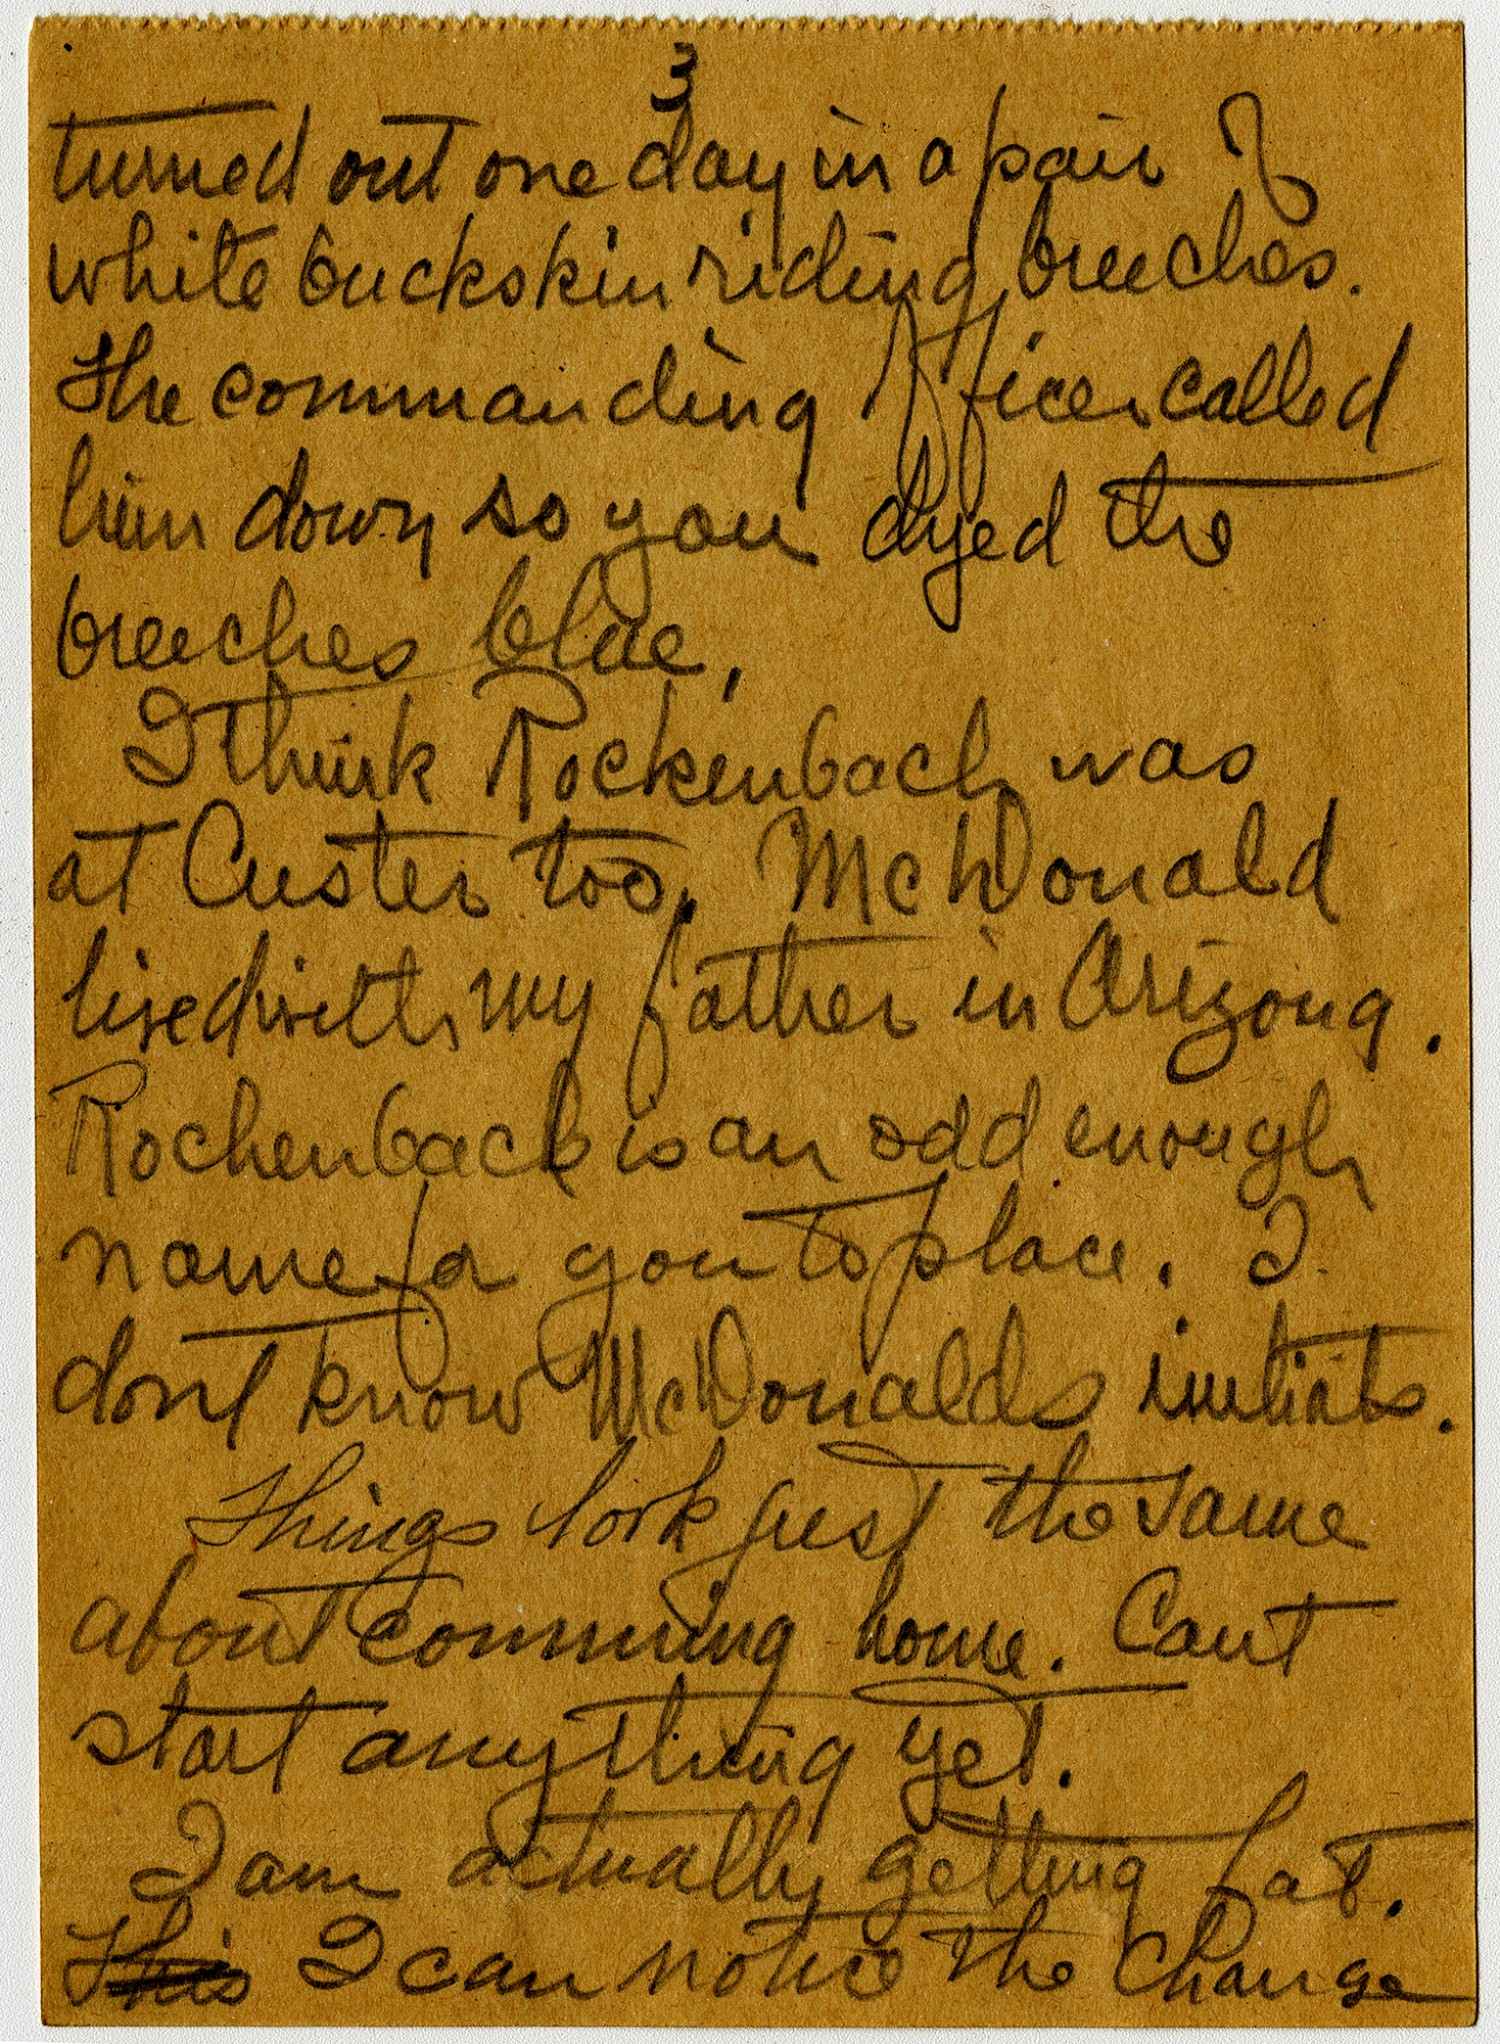 3
turned out one day in a pair of
white buckskin riding breeches.
The commanding officer called
him down so you dyed the
breeches blue.
I think Rockenbach was
at Custer too. McDonald
lived with my father in Arizona.
Rockenback is an odd enough
name for you to place. I
dont know McDonalds initials.
Things look just the same
about comming home. Cant
start anything yet.
I am actually getting fat.
This I can notice the change